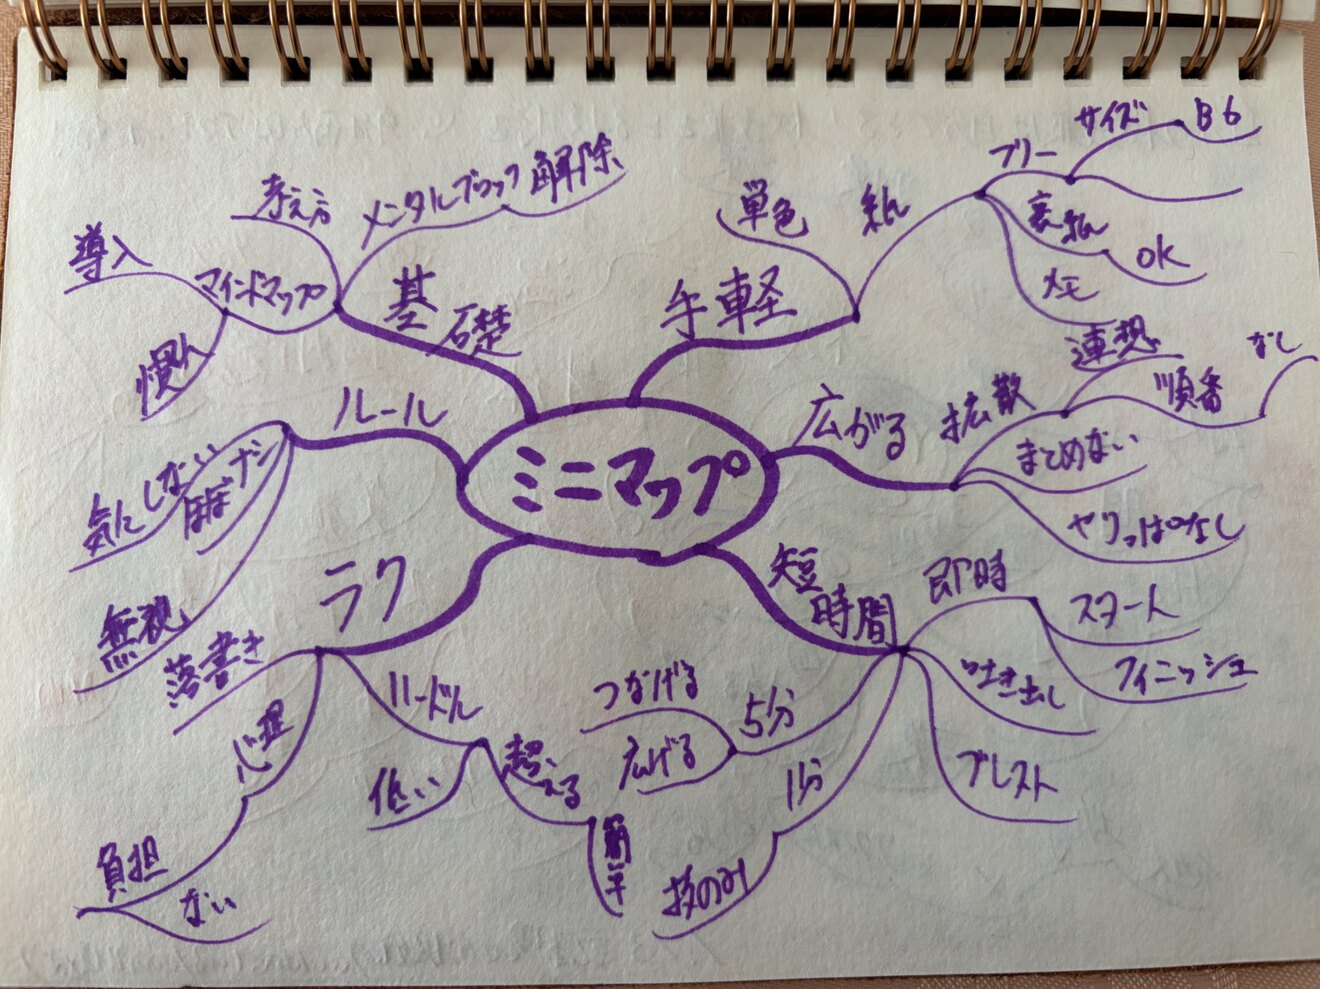 ミニマップ
手軽
単色
紙
フリー
サイズ
B6
裏紙
OK
メモ
広がる
拡散
連想
順番
なし
まとめない
やりっぱなし
短
時間
即時
スタート
フィニッシュ
吐き出し
ブレスト
5分
つなげる
広げる
1分
枝のみ
ラク
落書き
心理
負担
ない
ハードル
低い
超える
簡単
ルール
気にしない
ほぼナシ
無視
基
礎
メンタルブロック
解除
考え方
マインドマップ
導入
慣れ